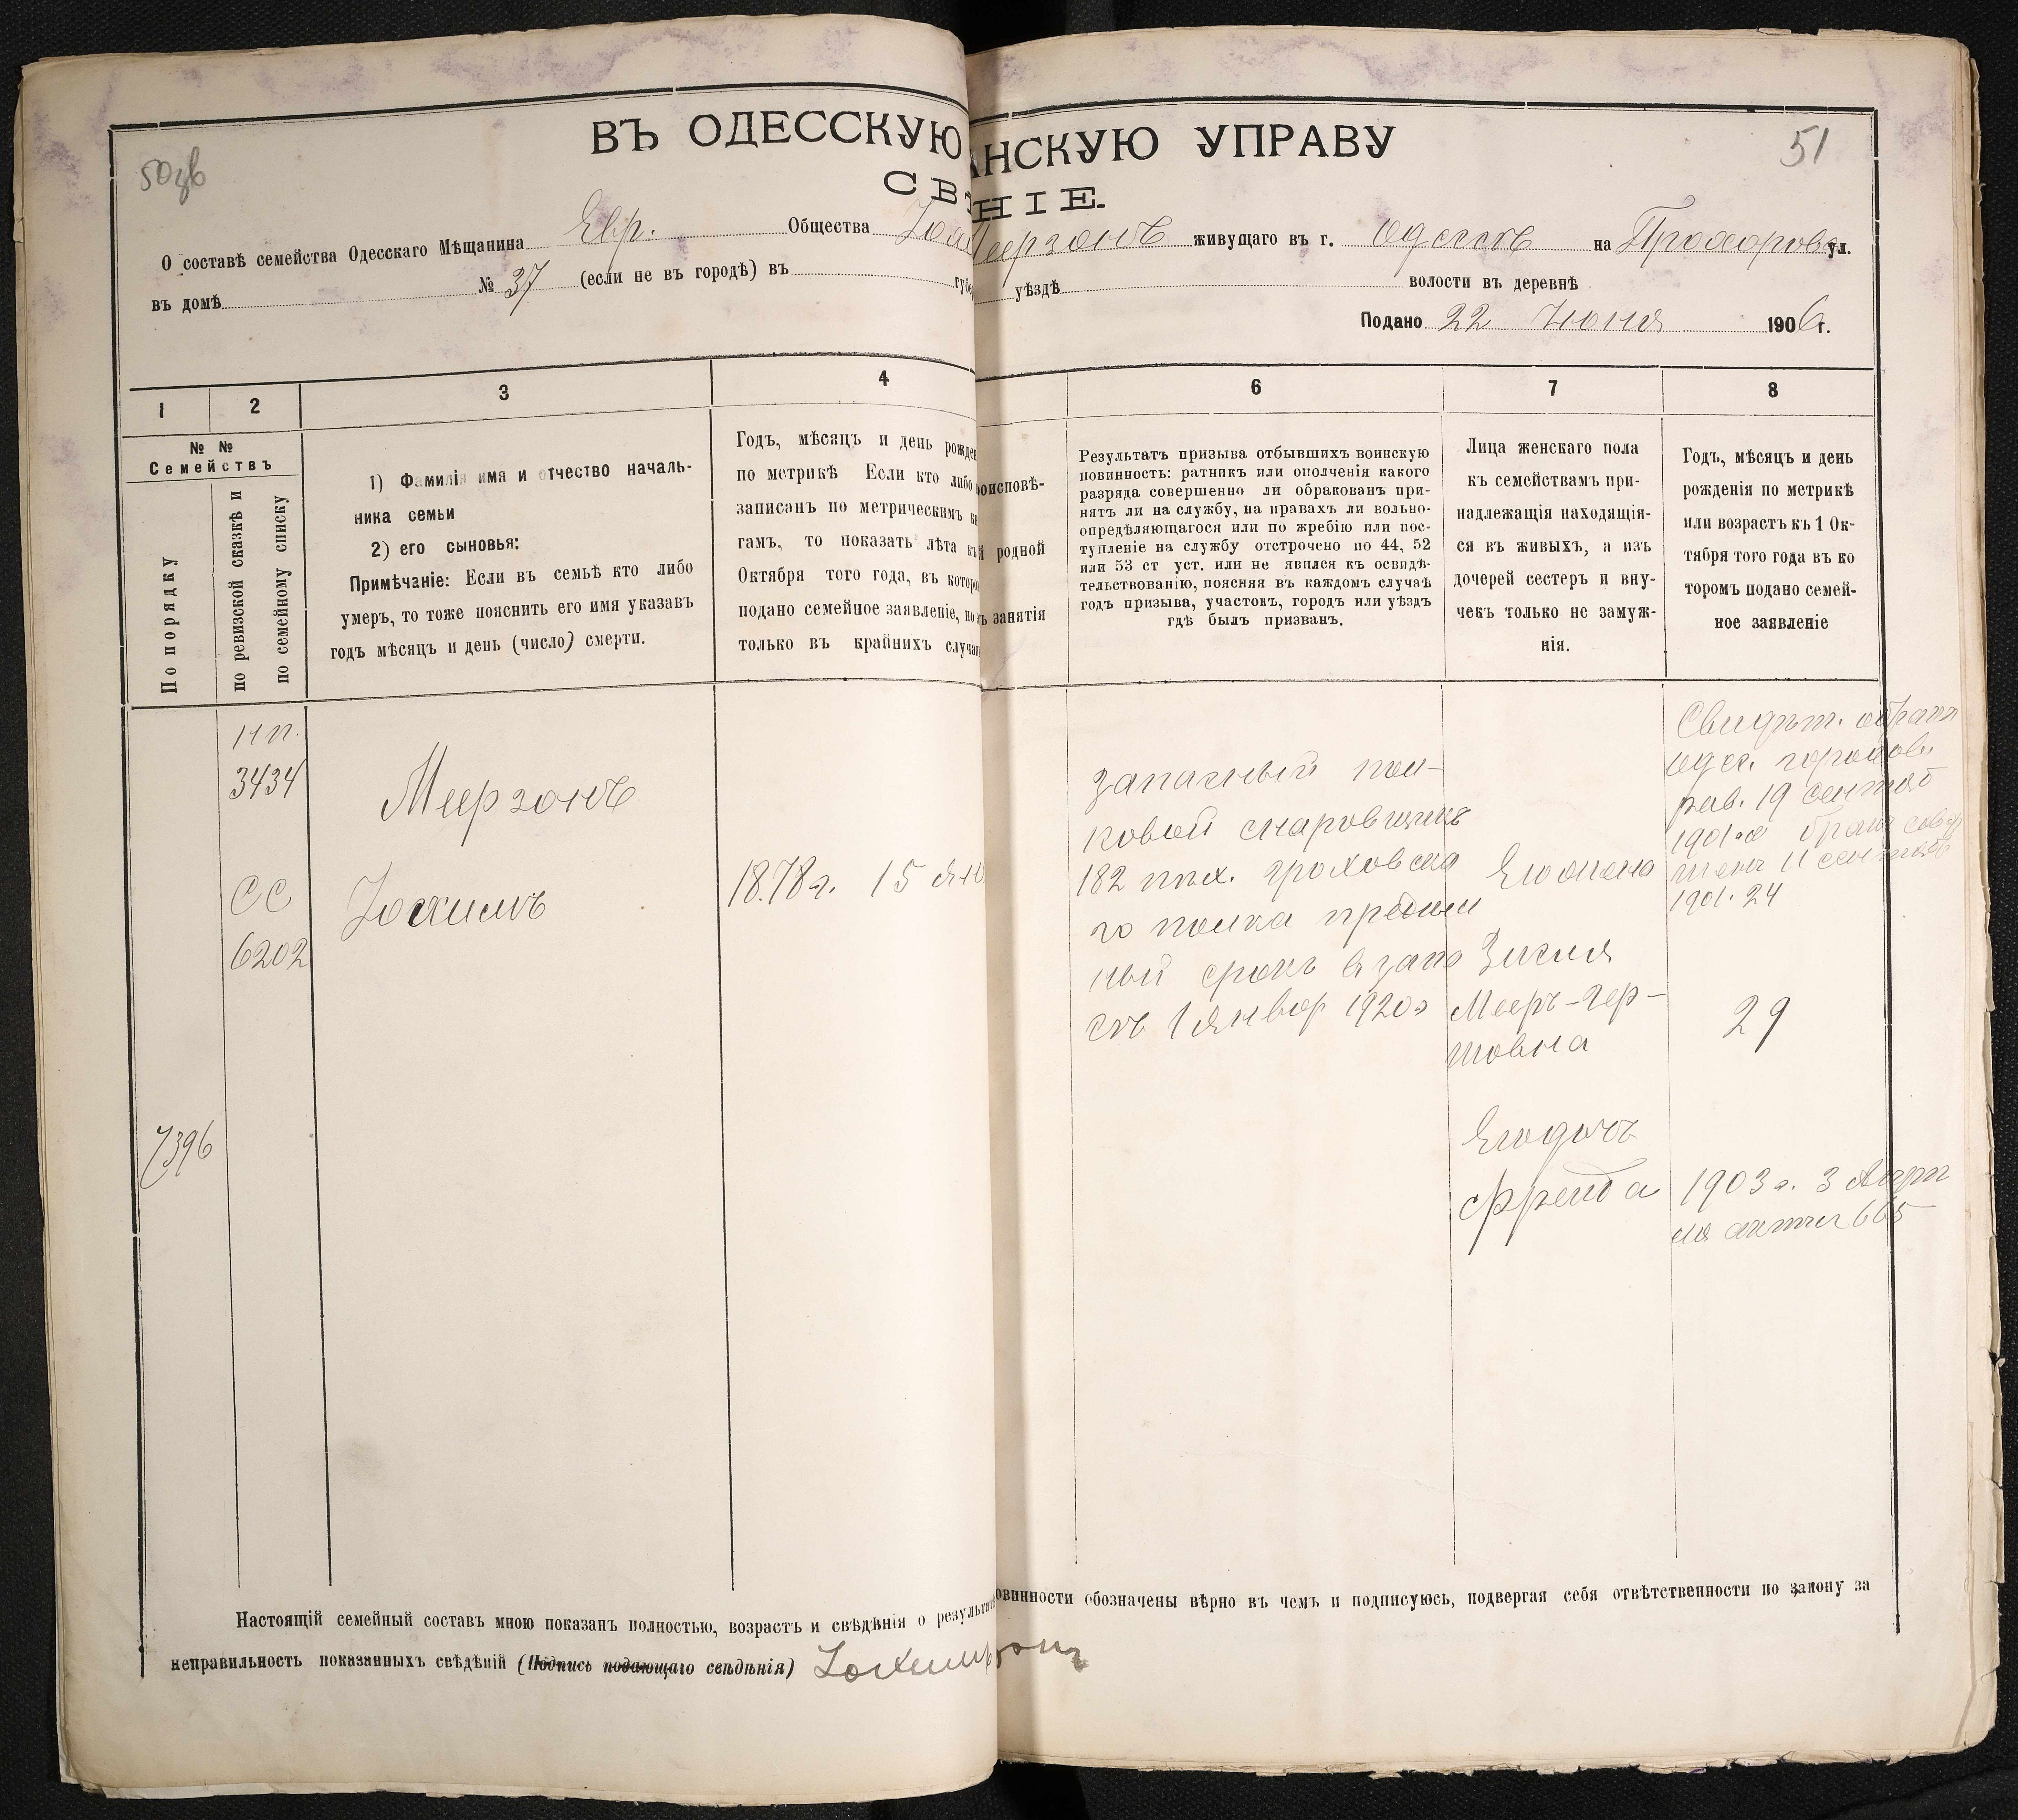 ВЪ ОДЕССКУЮ АНСКУЮ УПРАВУ
50зв
51
СВѢ НІЕ.
О составѣ семейства Одесскаго Мѣщанина Евр. Общества Іоа Меерзонъ живущаго въ г. Одессѣ на Прохоровс ул.
въ домѣ № 37 (если не въ городѣ) въ губе уѣздѣ волости въ деревнѣ
Подано 22 Июня 1906 г.
1 2 3 4 6 7 8
№ №
Семействъ
По порядку
по ревизской сказкѣ и
по семейному списку
1) Фамилія имя и отчество началь-
ника семьи
2) его сыновья:
Примѣчаніе: Если въ семьѣ кто либо
умеръ, то тоже пояснить его имя указавъ
годъ мѣсяцъ и день (число) смерти.
Годъ, мѣсяцъ и день рожде
по метрикѣ Если кто либо
записанъ по метрическимъ кн
гамъ, то показать лѣта къ
Октября того года, въ которо
подано семейное заявленіе, но
только въ крайнихъ случа
оисповѣ-
й родной
ъ занятія
Результатъ призыва отбывшихъ воинскую
повинность: ратникъ или ополченія какого
разряда совершенно ли обракованъ при-
нятъ ли на службу, на правахъ ли вольно-
опредѣляющагося или по жребію или пос-
тупленіе на службу отсрочено по 44, 52
или 53 ст уст. или не явился къ освидѣ-
тельствованію, поясняя въ каждомъ случаѣ
годъ призыва, участокъ, городъ или уѣздъ
гдѣ былъ призванъ.
Лица женскаго пола
къ семействамъ при-
надлежащія находящія-
ся въ живыхъ, а изъ
дочерей сестеръ и вну-
чекъ только не замуж-
нія.
Годъ, мѣсяцъ и день
рожденія по метрикѣ
или возрастъ къ 1 Ок-
тября того года въ ко
торомъ подано семей-
ное заявленіе
НП.
3434
СС
6202
7396
Меерзонъ
Іохимъ
1878 г. 15 Ян
Запасный пол-
ковой
182 пѣх. Гроховска
го полка
ный срокъ в запа
съ 1 Январ 1920 г
Его жена
Зисля
Мееръ-Гер-
шовна
Его дочь
Фрейда
Свидѣт. о бракѣ
Одес. городов.
рав. 19 сентяб
1901 г
11 сентяб
1901. 24
29
1903 г. 3 Апрѣ
ля актъ 665
Настоящій семейный составъ мною показанъ полностью, возрастъ и свѣдѣнія о результат овинности обозначены вѣрно въ чемъ и подписуюсь, подвергая себя отвѣтственности по закону за
неправильность показанныхъ свѣдѣній (Подпись подающаго свѣдѣнія) Іохим зонъ